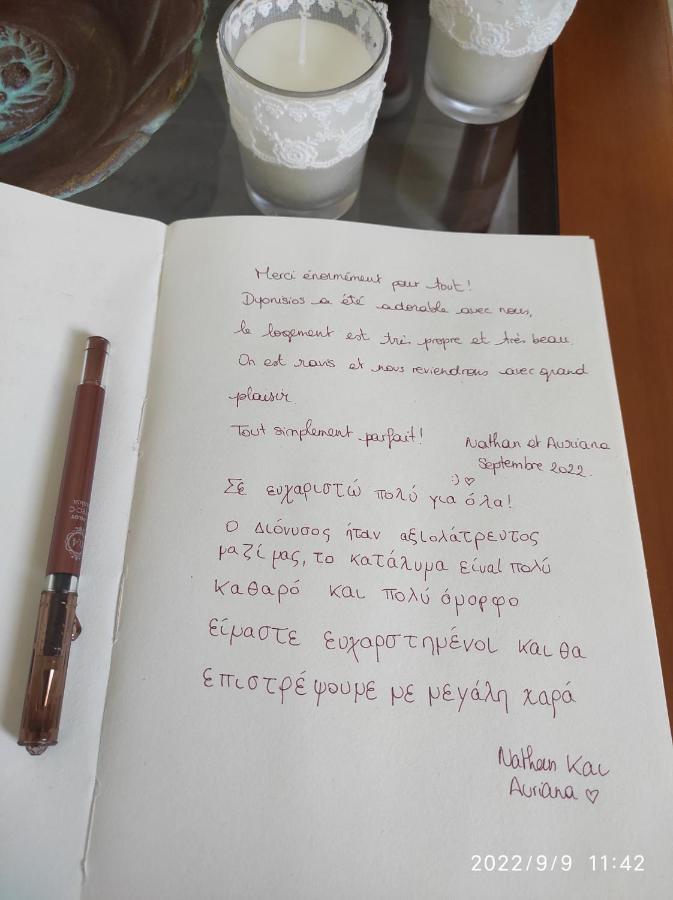 Merci énormément pour tout!
Dyonisios a été adorable avec nous,
le logement est très propre et très beau.
On est ravis et nous reviendrons avec grand
plaisir.
Tout simplement parfait!
Nathan et Auriana
Septembre 2022.
:) ♡
Σε ευχαριστώ πολύ για όλα!
Ο Διόνυσος ήταν αξιολάτρευτος
μαζί μας, το κατάλυμα είναι πολύ
καθαρό και πολύ όμορφο
είμαστε ευχαρστημένοι και θα
επιστρέψουμε με μεγάλη χαρά
Nathan Και
Auriana ♡
2022/9/9 11:42